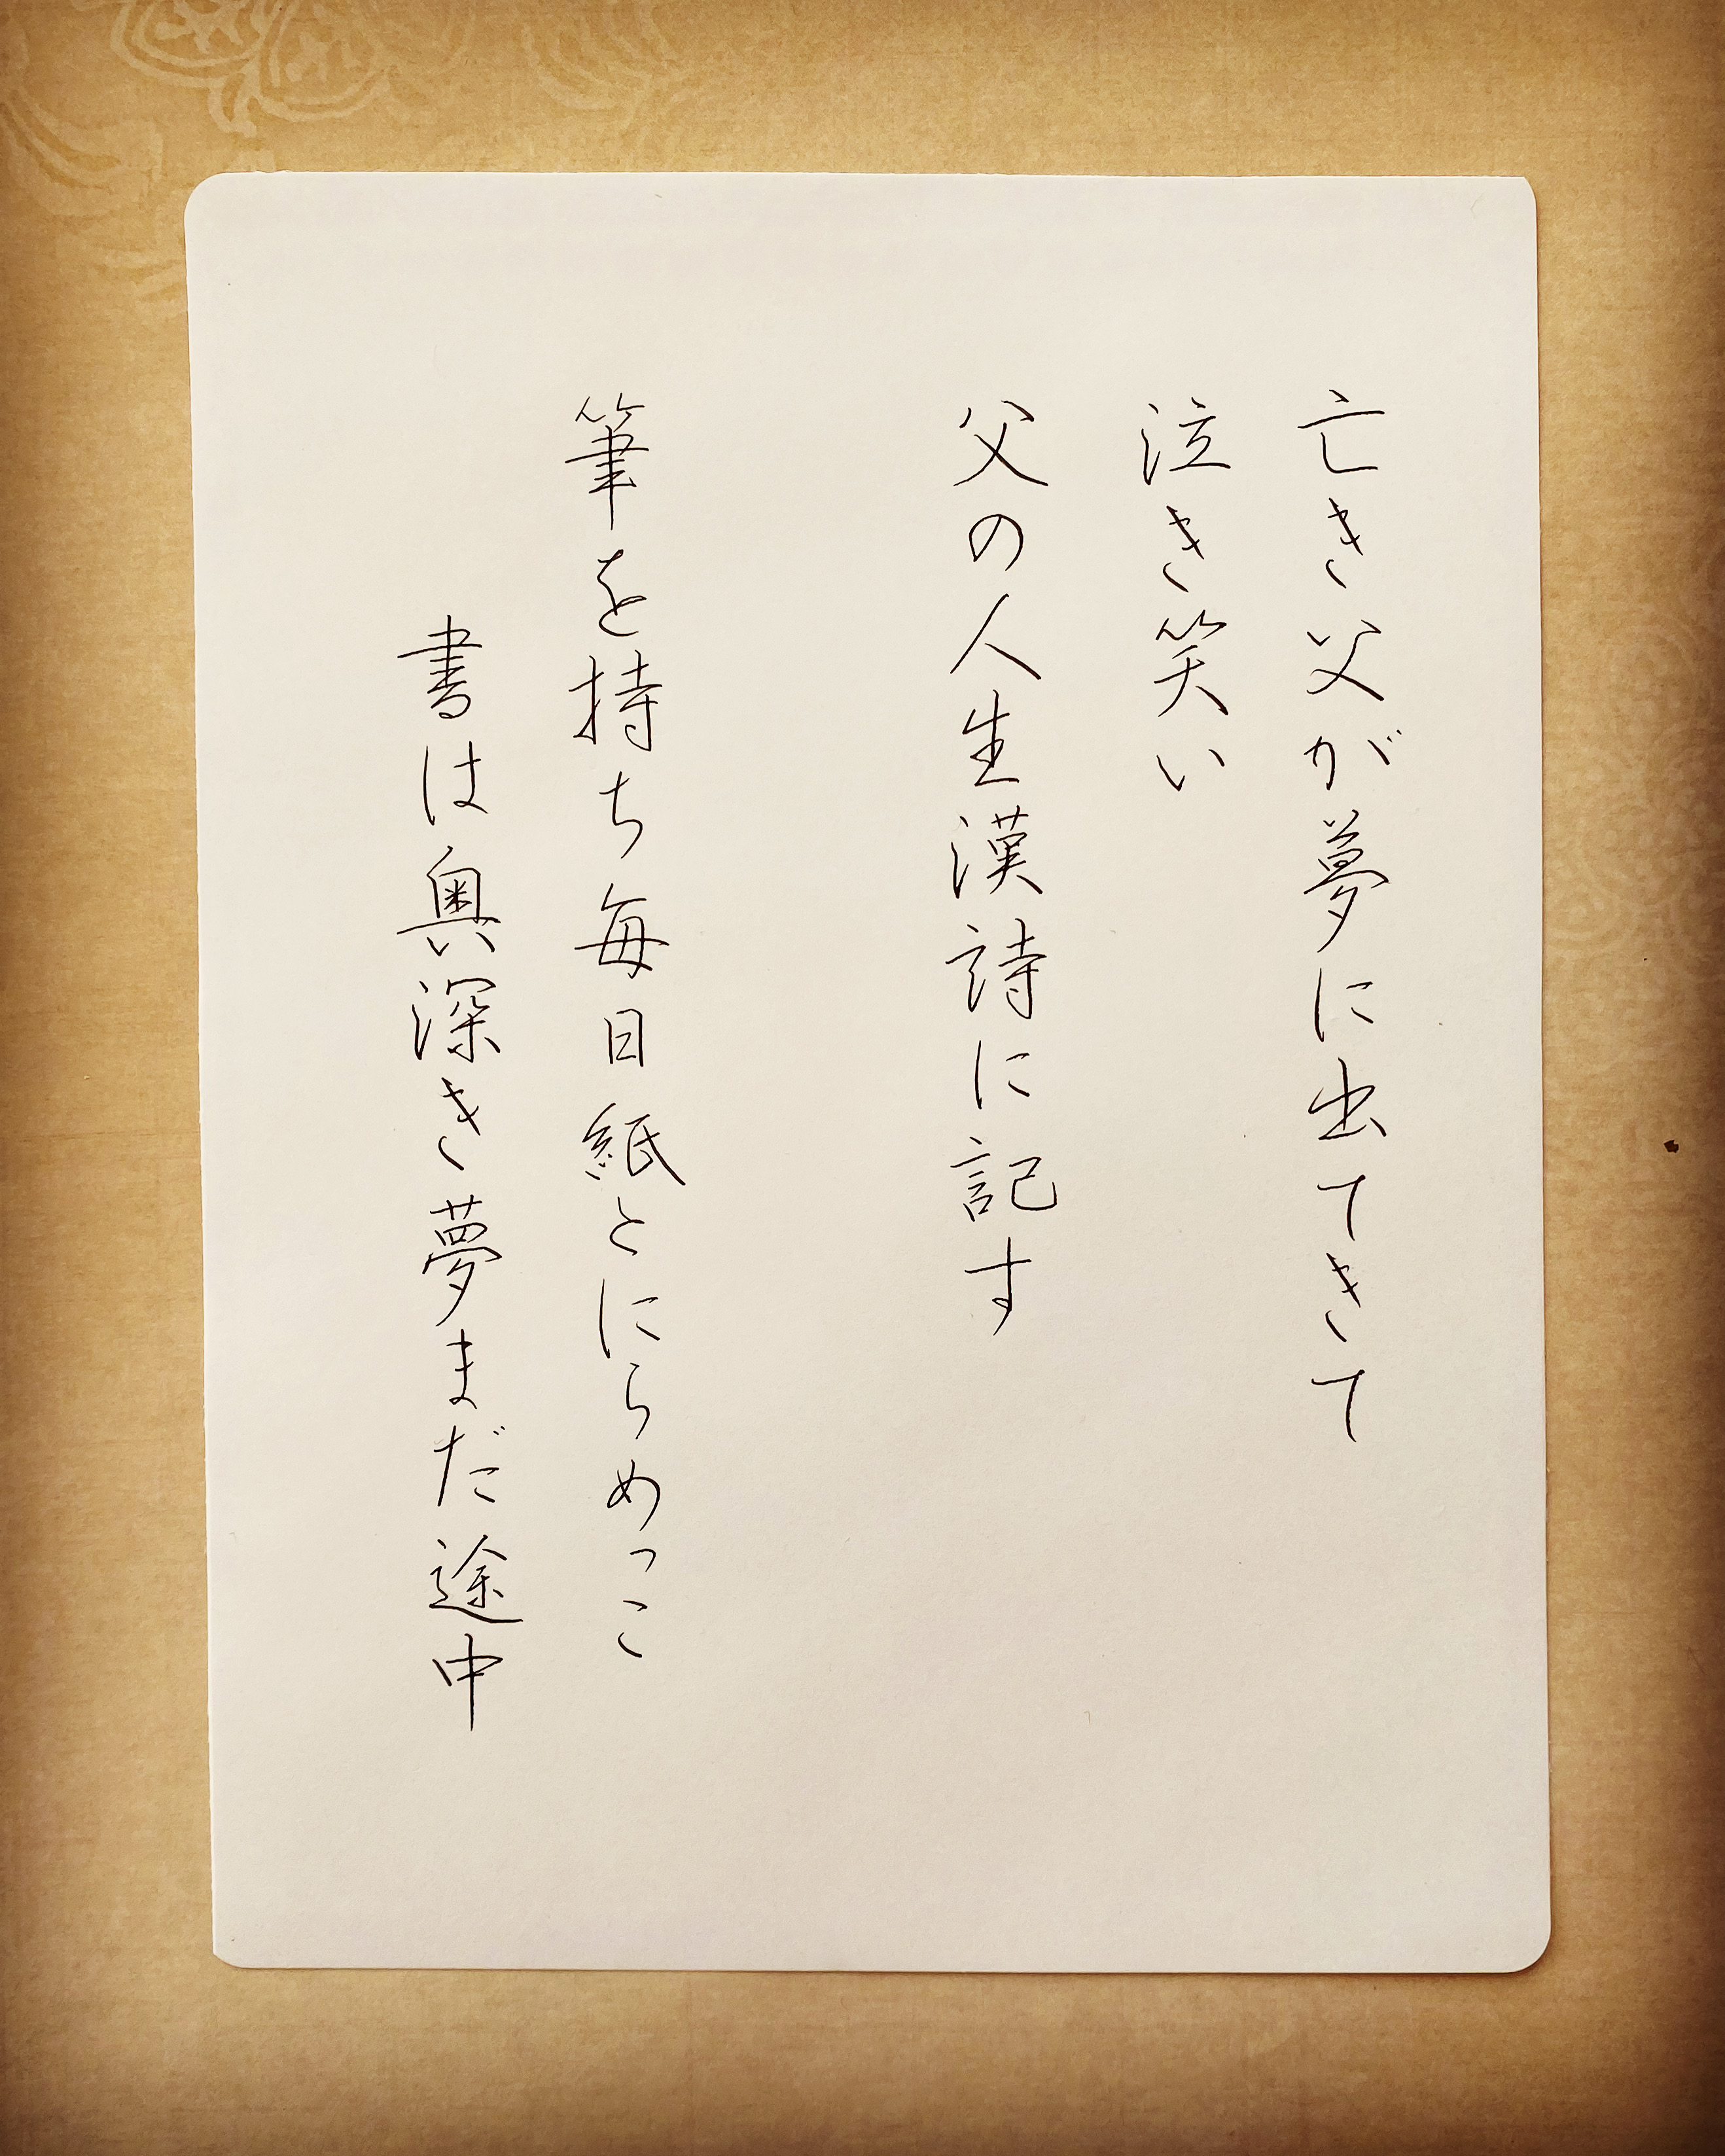 亡き父が夢に出てきて
泣き笑い
父の人生漢詩に記す
筆を持ち毎日紙とにらめっこ
書は奥深き夢まだ途中